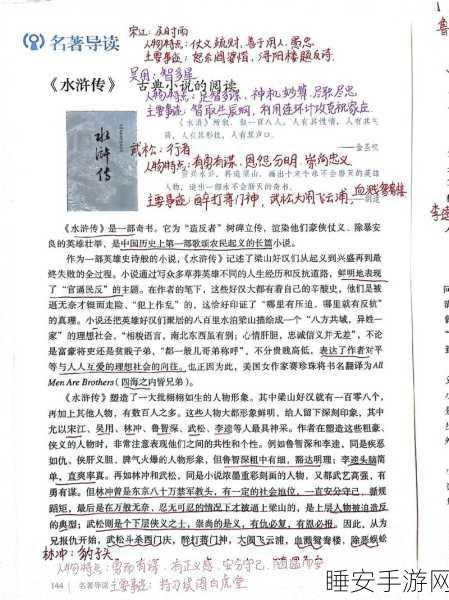 名著导读
宋江：及时雨
人物特点：仗义疏财、善于用人、愚忠
主要事迹：怒杀阎婆惜、浔阳楼题反诗
《水浒传》 古典小说的阅读
吴用：智多星
人物特点：足智多谋、神机妙算
主要事迹：智取生辰纲、利用连环计攻克祝家庄
《水浒》所叙，叙一百八人，人有其性情，人有其气
质，人有其形状，人有其声口。
——金圣叹
水浒传
武松：行者
人物特点：有勇有谋、恩怨分明、崇尚忠义
人物，
主要事迹：醉打蒋门神，武松大闹飞云浦，血溅鸳鸯楼
《水浒传》是一部奇书。它为“造反者”树碑立传，渲染他们豪侠仗义、除暴安
良的英雄壮举，是中国历史上第一部歌颂农民起义的长篇小说。
作为一部英雄史诗般的小说，《水浒传》记述了梁山好汉们从起义到兴盛再到最
终失败的全过程。小说通过写众多草莽英雄不同的人生经历和反抗道路，鲜明地表现
了“官逼民反”的主题。在作者的笔下，这些好汉大都有着自己的辛酸史，他们是被
逼无奈才铤而走险、“犯上作乱”的，这恰好印证了“哪里有压迫，哪里就有反抗”
的真理。小说还把英雄好汉们聚居的八百里水泊梁山描绘成一个“八方共域，异姓一
家”的理想社会，“相貌语言，南北东西虽有别；心情肝胆，忠诚信义并无差”，不论
是富豪将吏还是贫贱子弟，“都一般儿哥弟称呼”，不分贵贱高低，表达了作者对平
等与人人互爱的理想社会的向往。也正因为此，美国女作家赛珍珠将书名翻译为All
Men Are Brothers（四海之内皆兄弟）。
《水浒传》塑造了一大批栩栩如生的人物形象。其中梁山好汉就有一百零八个，
再加上其他人物，有数百人之多。这些人物大都形象鲜明，给人留下深刻印象，其中
尤以宋江、吴用、林冲、鲁智深、武松、李逵等人最具神采。作者在塑造这些粗豪、
侠义的人物时，非常注意表现他们之间的共性和个性。例如鲁智深和李逵，同是疾恶
如仇、侠肝义胆、脾气火爆的人物形象，但鲁智深粗中有细，豁达明理；李逵头脑简
单，直爽率真。再如林冲和武松，同是小说浓墨重彩刻画的人物，又都武艺高强，有
勇有谋。但林冲曾是东京八十万禁军教头，有一定的社会地位，一直安分守己、循规
蹈矩，最后是在万般无奈、忍无可忍的情况下才被逼上梁山的，是上层人物被迫造反
的典型；武松则是个下层侠义之士，崇尚的是义，有仇必复，有恩必报。因此，从为
兄报仇开始，武松斗杀西门庆，醉打蒋门神，大闹飞云浦，血溅鸳鸯楼，除恶蜈蚣
林冲：豹子头
人物特点：勇而有谋、有正义感、安分守己、随遇而安
144 名著导读
主要事迹：持刀误闯白虎堂
睡安手游网